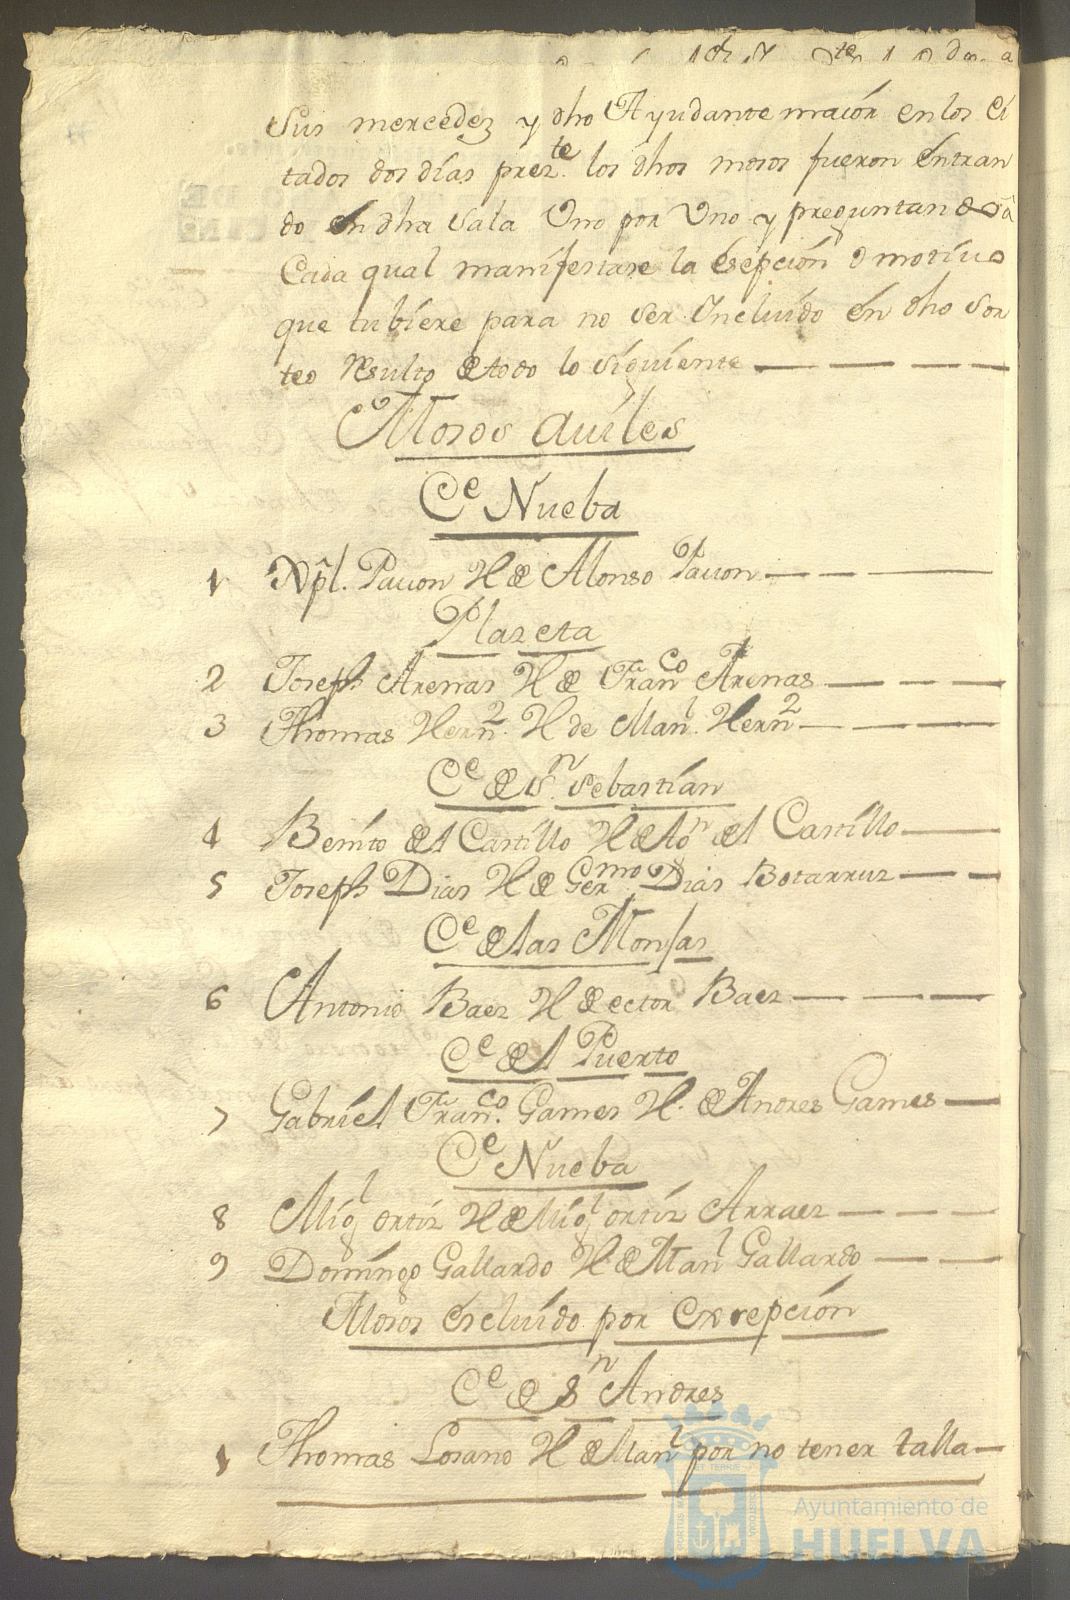 Sus mercedez y dho Ayudante maior en los Ci
tados dos días prez.te los dhos mosos fueron éntran
do én dha sala Uno por Uno y preguntando â
Cada qual manifestase la Esépción o motivo
que tubiere para no ser Yncluido én dho sor
teo Resulto de todo lo siguiente
Mosos áuiles
Ce Nueba
1 Xpl. Pauon H de Alonso Pauon
Plazeta
2 Joseph Arenas H de Franco Arenas
3 Thomas Hernz. H de Manl. Hernz
Ce de Sn. Sebastían
4 Beníto del Castíllo H de Ton del Castíllo
5 Joseph Dias H de Germo. Dias Botarruz
Ce de las Monjas
6 Antonio Baez H de ector Baez
Ce del Puerto
7 Gabríel Franco. Games H. de Andres Games
Ce Nueba
8 Migl ortíz H de Migl ortíz Arraez
9 Domíngo Gallardo H de Manl Gallardo
Mosos éscluido por Excepción
Ce de Sn Andres
1 Thomas Losano H de Manl por no tener talla
Ayuntamiento de
HUELVA